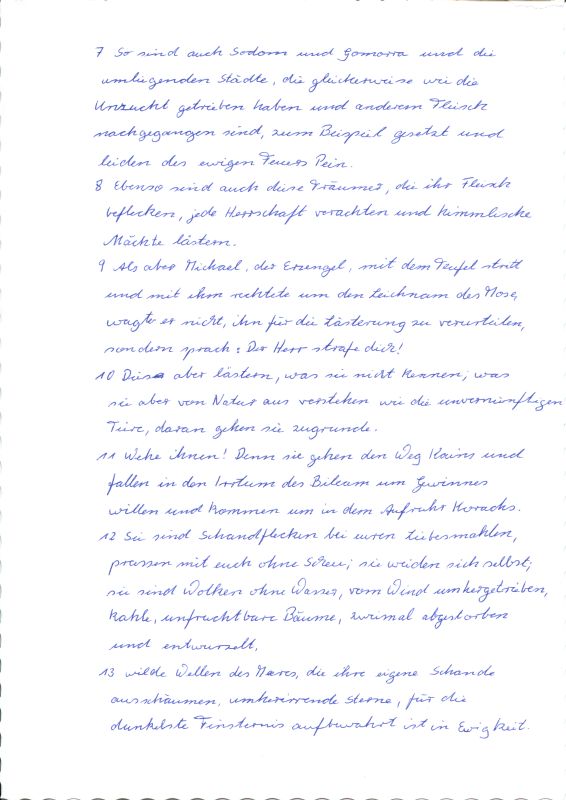 7 So sind auch Sodom und Gomorra und die
umliegenden Städte, die gleicherweise wie die
Unzucht getrieben haben und anderem Fleisch
nachgegangen sind, zum Beispiel gesetzt und
leiden des ewigen Feuers Pein.
8 Ebenso sind auch diese Träumer, die ihr Fleisch
beflecken, jede Herrschaft verachten und himmlische
Mächte lästern.
9 Als aber Michael, der Erzengel, mit dem Teufel stritt
und mit ihm rechtete um den Leichnam des Mose,
wagte er nicht, ihn für die Lästerung zu verurteilen,
sondern sprach: Der Herr strafe dich!
10 Diese aber lästern, was sie nicht kennen; was
sie aber von Natur aus verstehen wie die unvernünftigen
Tiere, daran gehen sie zugrunde.
11 Wehe ihnen! Denn sie gehen den Weg Kains und
fallen in den Irrtum des Bileam um Gewinnes
willen und kommen um in dem Aufruhr Korachs.
12 Sie sind Schandflecken bei euren Liebesmahlen,
prassen mit euch ohne Scheu; sie weiden sich selbst;
sie sind Wolken ohne Wasser, vom Wind umhergetrieben,
kahle, unfruchtbare Bäume, zweimal abgestorben
und entwurzelt,
13 wilde Wellen des Meeres, die ihre eigene Schande
ausschäumen, umherirrende Sterne, für die
dunkelste Finsternis aufbewahrt ist in Ewigkeit.